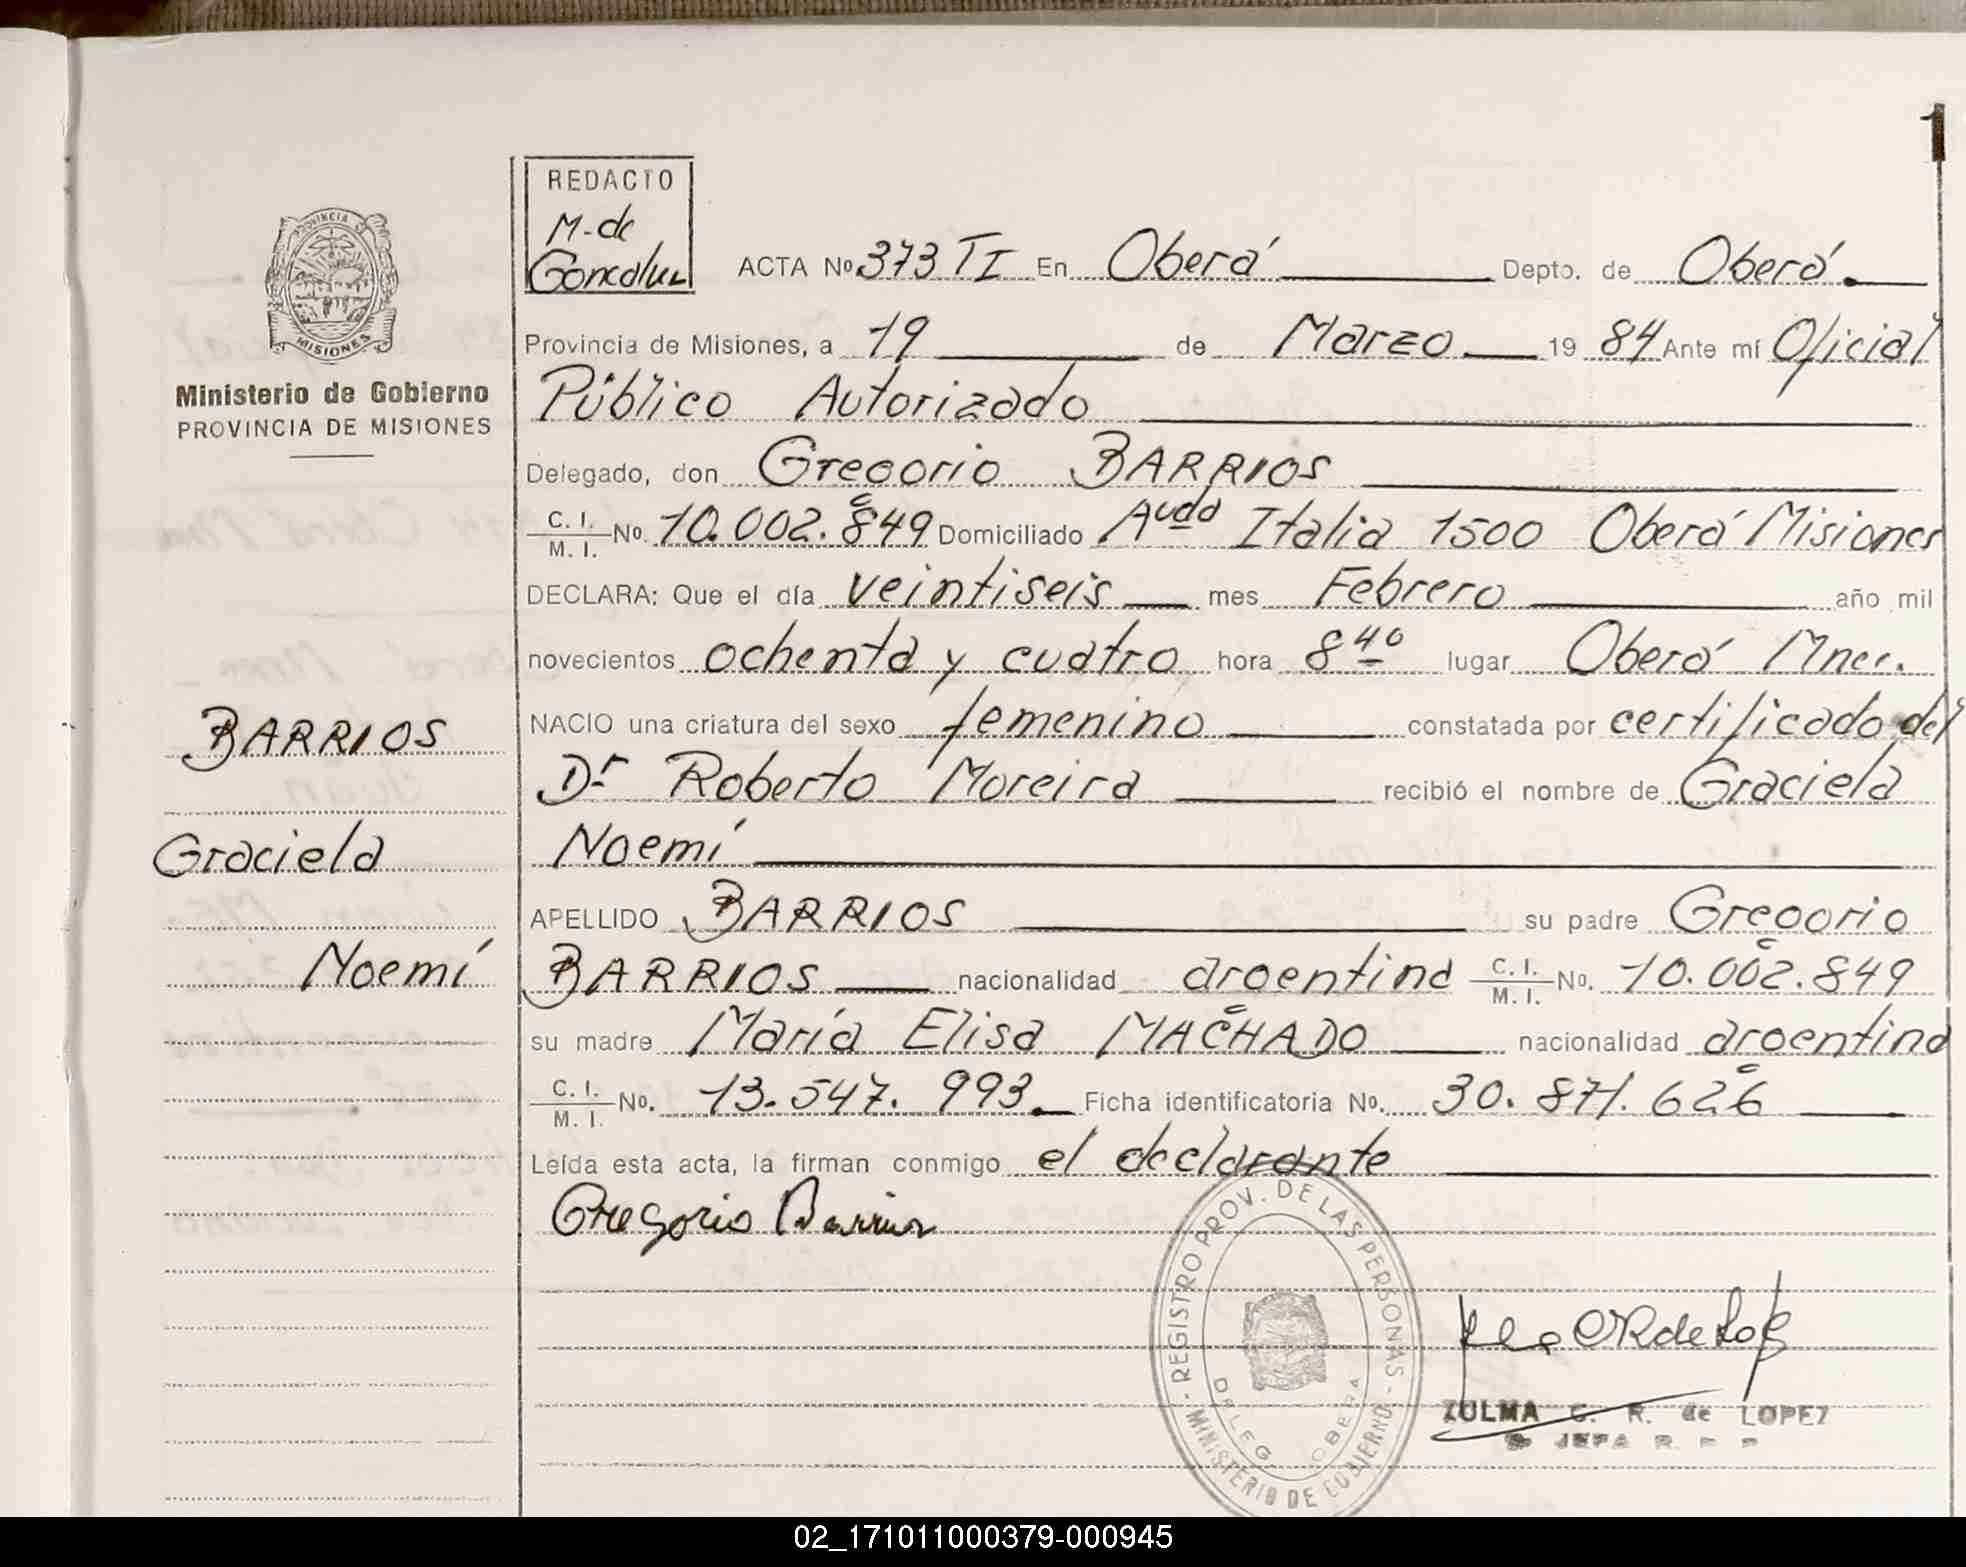 1
REDACTO
M. de
Goncalvez
PROVINCIA
MISIONES
Ministerio de Gobierno
PROVINCIA DE MISIONES
ACTA Nº 373 TI En Oberá Depto. de Oberá.
Provincia de Misiones, a 19 de Marzo 19 84 Ante mí Oficial
Público Autorizado
Delegado, don Gregorio BARRIOS
C. I. / M. I. No. 10.002.849 Domiciliado Avdd Italia 1500 Oberá Misiones
DECLARA: Que el día veintiseis mes Febrero año mil
novecientos ochenta y cuatro hora 8 40 lugar Oberá Mnes.
NACIO una criatura del sexo femenino constatada por certificado del
Dr Roberto Moreira recibió el nombre de Graciela
Noemí
APELLIDO BARRIOS su padre Gregorio
BARRIOS nacionalidad argentina C. I. / M. I. No. 10.002.849
su madre María Elisa MACHADO nacionalidad argentina
C. I. / M. I. No. 13.547.993. Ficha identificatoria No. 30.871.626
Leída esta acta, la firman conmigo el declarante
Gregorio Barrios
BARRIOS
Graciela
Noemí
REGISTRO PROV. DE LAS PERSONAS - MINISTERIO DE GOBIERNO -
DELEG. OBERA
ZULMA C. R. de LOPEZ
JEFA R. P. P.
02_171011000379-000945